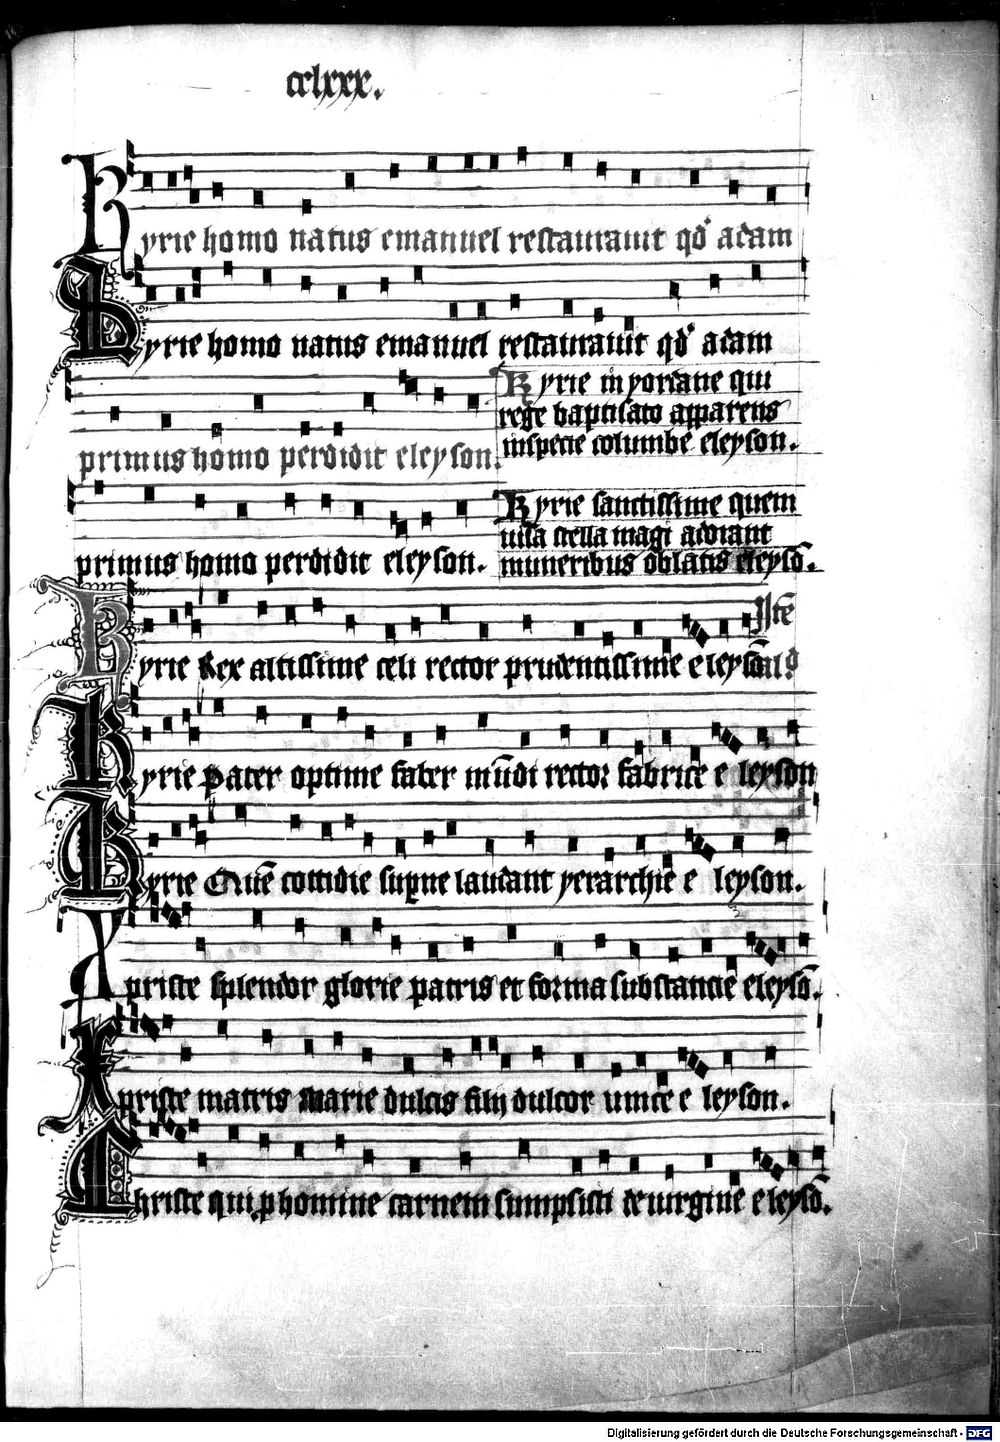 cclxxx.
Kyrie homo natus emanuel restaurauit qd' adam
Kyrie homo natus emanuel restaurauit qd' adam
Kyrie in yordane qui
rege baptisato apparens
inspecie columbe eleyson.
primus homo perdidit eleyson.
Kyrie sanctissime quem
uisa stella magi adorant
muneribus oblatis eleysō.
primus homo perdidit eleyson.
Itē
Kyrie Rex altissime celi rector prudentissime eleyson
Kyrie pater optime faber mūdi rector fabrice eleyson
Kyrie Quē cottidie supne laudant yerarchie eleyson.
Xpriste splendor glorie patris et forma substancie eleysō.
Xpriste matris marie dulcis filij dulcor vnice eleyson.
Christe qui p homine carnem sumpsisti de uirgine eleysō.
Digitalisierung gefördert durch die Deutsche Forschungsgemeinschaft - DFG